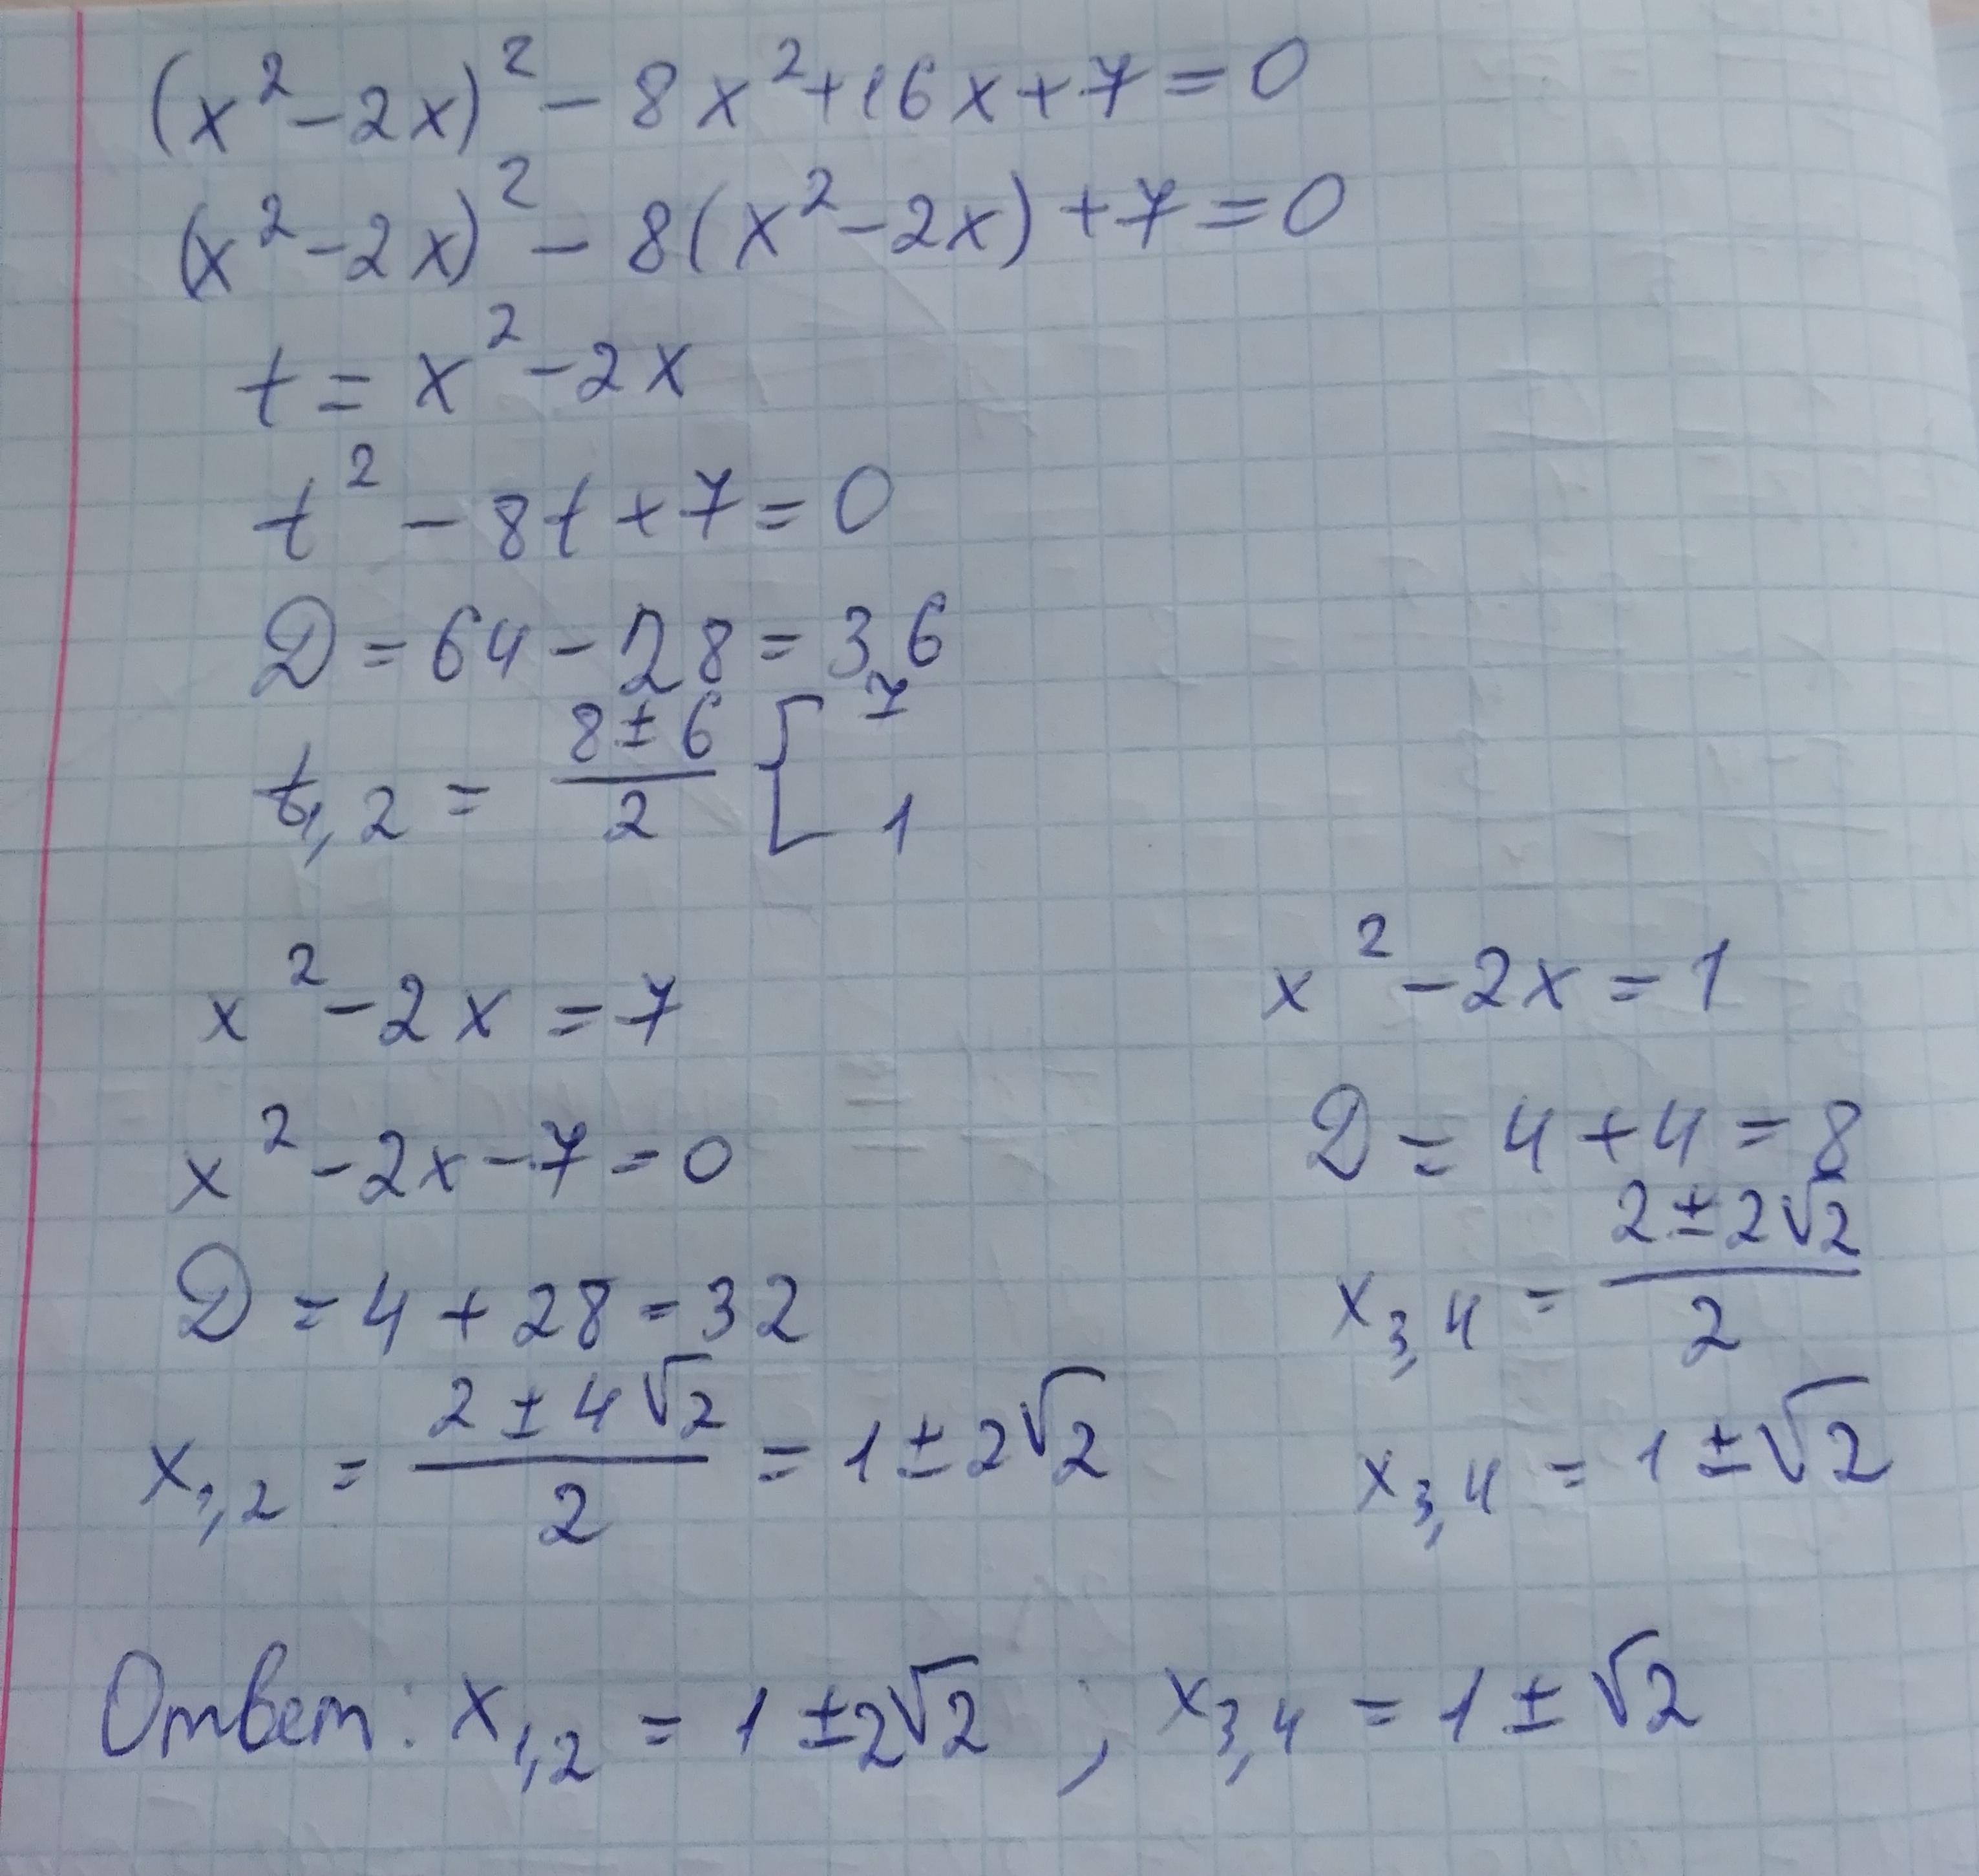 (x² - 2x)² - 8x² + 16x + 7 = 0
(x² - 2x)² - 8(x² - 2x) + 7 = 0
t = x² - 2x
t² - 8t + 7 = 0
D = 64 - 28 = 36
t₁,₂ = (8 ± 6)/2 [ 7 1
x² - 2x = 7
x² - 2x - 7 = 0
D = 4 + 28 = 32
x₁,₂ = (2 ± 4√2)/2 = 1 ± 2√2
x² - 2x = 1
D = 4 + 4 = 8
x₃,₄ = (2 ± 2√2)/2
x₃,₄ = 1 ± √2
Ответ: x₁,₂ = 1 ± 2√2 ; x₃,₄ = 1 ± √2